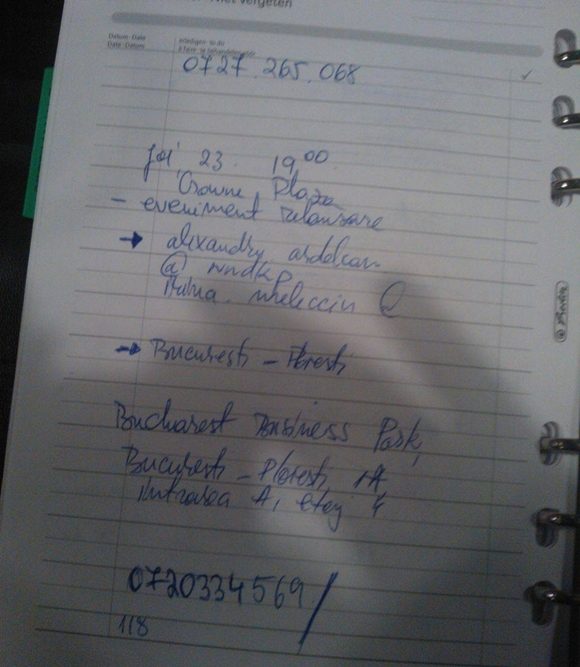 Niet vergeten
Datum · Date
Date · Datum
0727.265.068
Joi 23. 19 00
Crowne Plaza
- eveniment relansare
→ alexandru ardelean
@ nndkp
→ Bucuresti - Ploiesti
Bucharest Business Park,
Bucuresti - Ploiesti, 1A
intrarea A, etaj 4
0720334569/
118